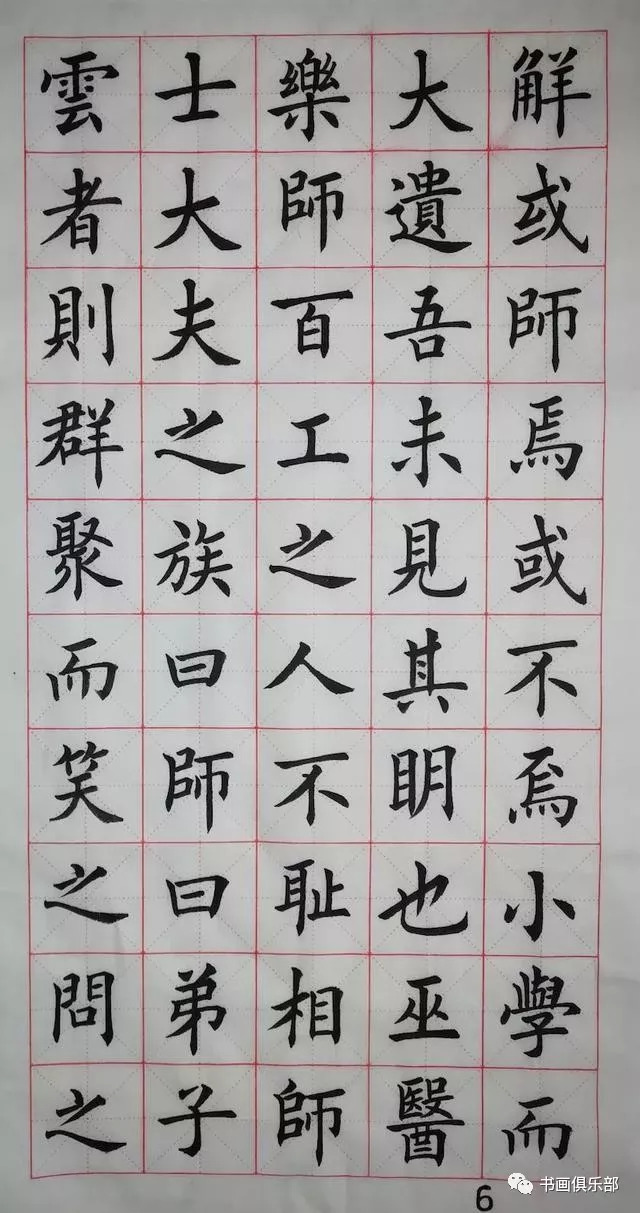 解或師焉或不焉小學而
大遺吾未見其明也巫醫
樂師百工之人不耻相師
士大夫之族曰師曰弟子
雲者則群聚而笑之問之
6
书画俱乐部